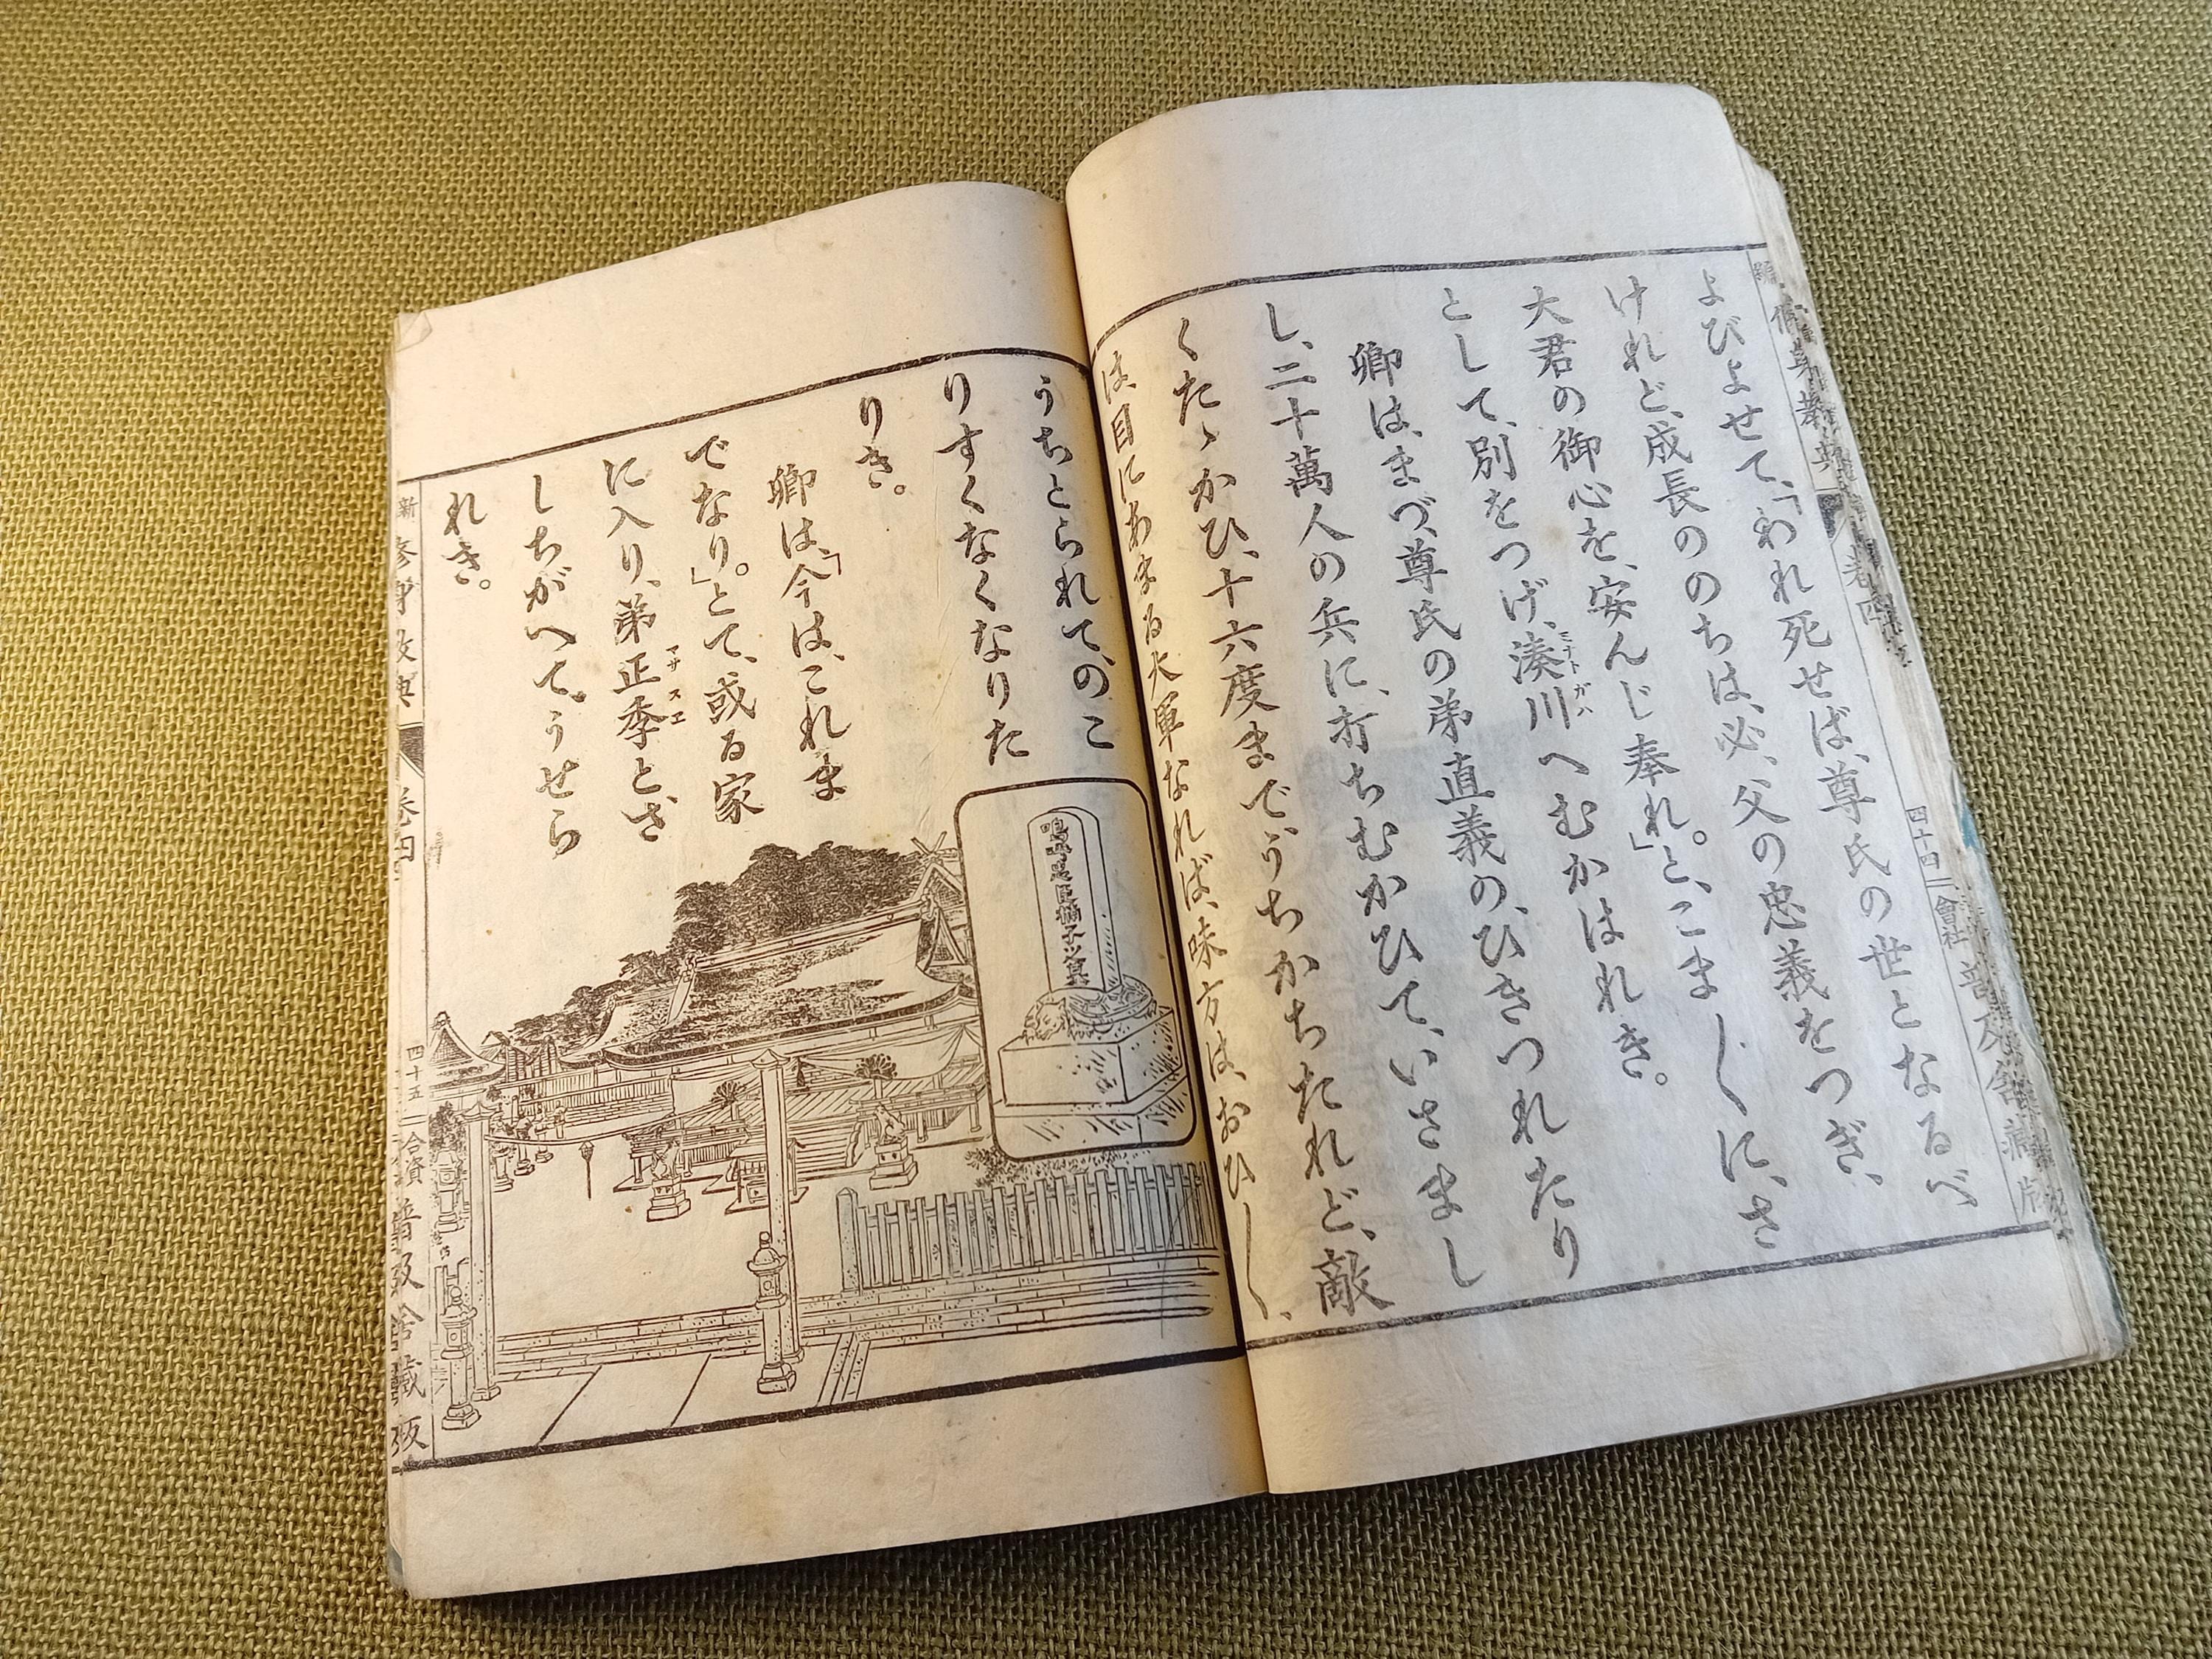 よびよせて、「われ死せば、尊氏の世となるべ
けれど、成長ののちは、必、父の忠義をつぎ、
大君の御心を、安んじ奉れ。」と、こま〲に、さ
として、別をつげ、湊川へむかはれき。
ミナトガハ
卿は、まづ、尊氏の弟直義の、ひきつれたり
し、二十萬人の兵に、打ちむかひて、いさまし
くたゝかひ、十六度まで、うちかちたれど、敵
は目にあまる大軍なれば、味方は、おひ〱、
四十四
會社
うちとられて、のこ
りすくなくなりた
りき。
卿は、「今は、これま
でなり。」とて、或る家
に入り、弟正季と、さ
マサスエ
しちがへて、うせら
れき。
嗚呼忠臣楠子之墓
新
修身教典
卷四
四十五
合資
普及舍藏版